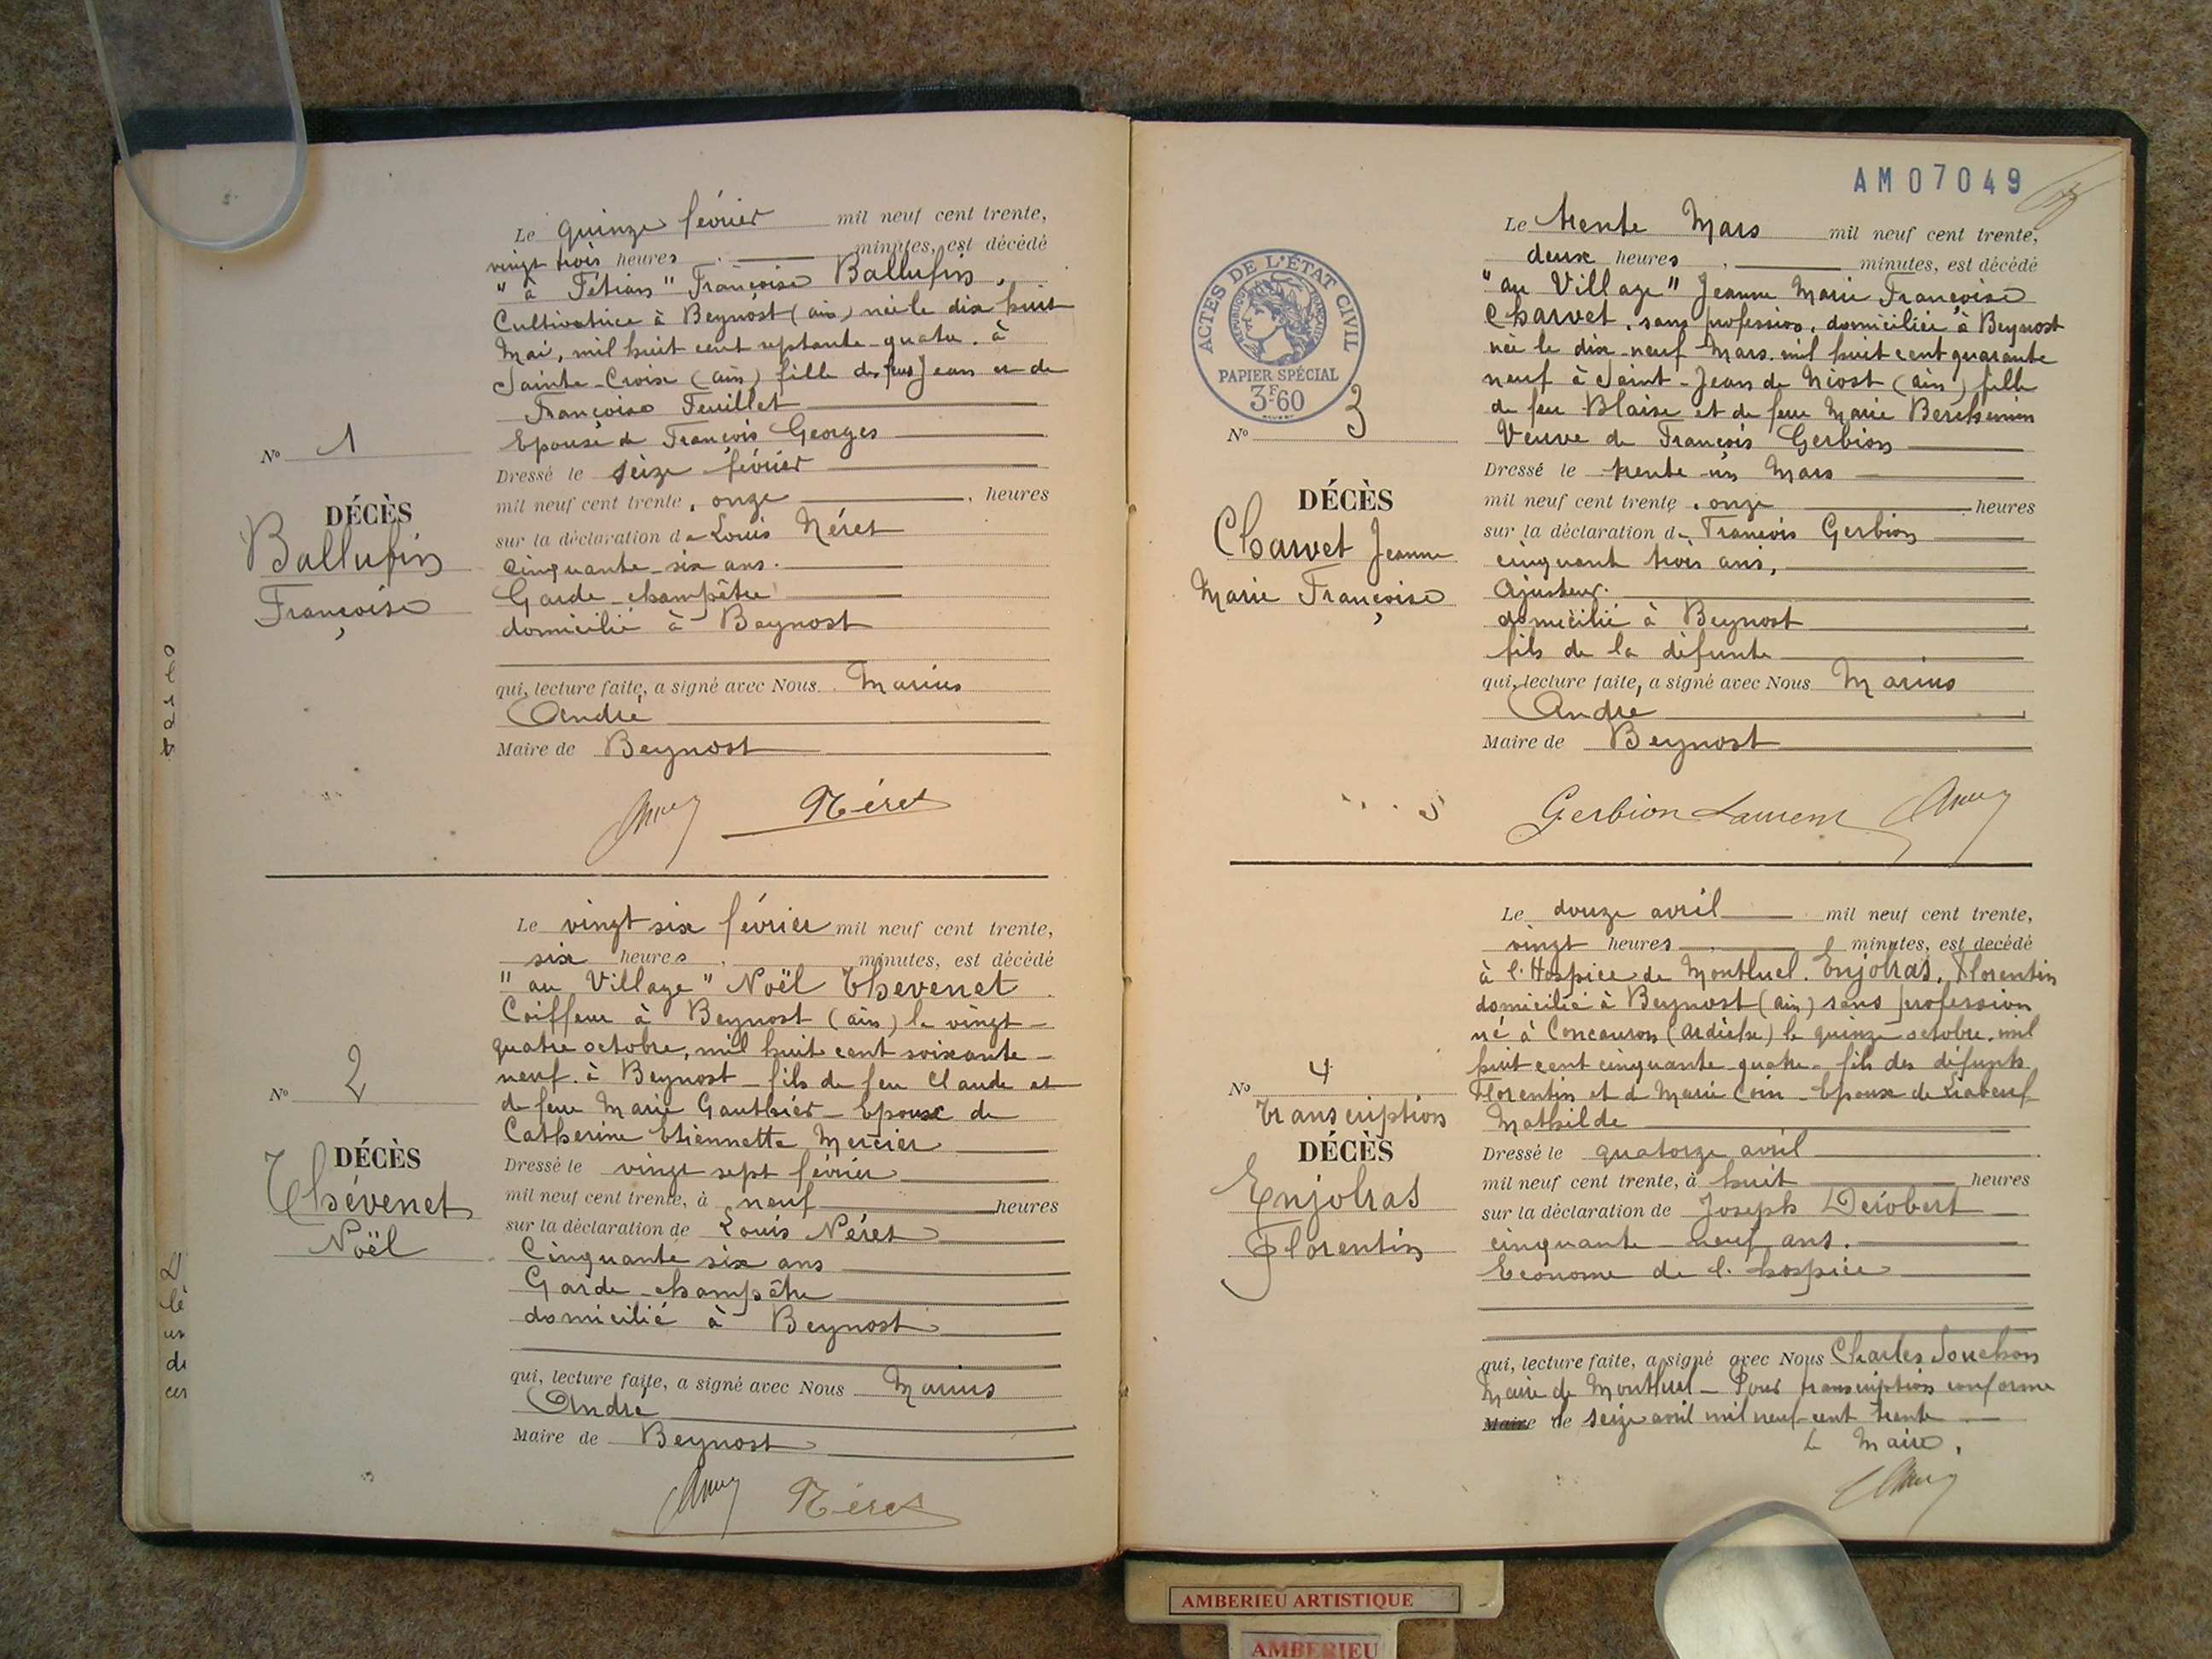 Le quinze février mil neuf cent trente,
vingt trois heures, minutes, est décédé
"à Fétian" Françoise Ballufin,
Cultivatrice à Beynost (ain) née le dix huit
Mai, mil huit cent septante-quatre. à
Sainte-Croix (ain) fille des feus Jean et de
Françoise Feuillet
Epouse de François Georges
N° 1
Dressé le seize février
mil neuf cent trente, onze heures
DÉCÈS
Ballufin
Françoise
sur la déclaration de Louis Néret
Cinquante-six ans.
Garde-champêtre
domicilié à Beynost
qui, lecture faite, a signé avec Nous Marius
André
Maire de Beynost
Néret
Le vingt six février mil neuf cent trente,
six heures, minutes, est décédé
"au Village" Noël Thevenet
Coiffeur à Beynost (ain) le vingt-
quatre octobre, mil huit cent soixante-
neuf. à Beynost - fils de feu Claude et
de feue Marie Gauthier - Epoux de
Catherine Etiennette Mercier
N° 2
DÉCÈS
Thévenet
Noël
Dressé le vingt sept février
mil neuf cent trente, à neuf heures
sur la déclaration de Louis Néret
Cinquante six ans
Garde-champêtre
domicilié à Beynost
qui, lecture faite, a signé avec Nous Marius
André
Maire de Beynost
Néret
AM07049
ACTES DE L'ÉTAT CIVIL
RÉPUBLIQUE FRANÇAISE
PAPIER SPÉCIAL
3F60
Le trente Mars mil neuf cent trente,
deux heures, minutes, est décédé
"au Village" Jeanne Marie Françoise
Charvet, sans profession, domiciliée à Beynost
née le dix-neuf Mars mil huit cent quarante
neuf à Saint-Jean de Niost (ain) fille
de feu Blaise et de feue Marie
Veuve de François Gerbion
N° 3
Dressé le trente-un Mars
mil neuf cent trente, onze heures
DÉCÈS
Charvet Jeanne
Marie Françoise
sur la déclaration de François Gerbion
cinquante trois ans,
Ajusteur.
domicilié à Beynost
fils de la défunte
qui, lecture faite, a signé avec Nous Marius
André
Maire de Beynost
Gerbion Laurent
Le douze avril mil neuf cent trente,
vingt heures, minutes, est decédé
à l'Hospice de Montluel. Enjolras, Florentin
domicilié à Beynost (ain) sans profession
né à Concouron (ardèche) le quinze-octobre. mil
huit cent cinquante-quatre - fils des défunts
Florentin et d Marie Coin - Epoux de Liabeuf
Mathilde
N° 4
Transcription
DÉCÈS
Enjolras
Florentin
Dressé le quatorze avril
mil neuf cent trente, à huit heures
sur la déclaration de Joseph Dérobert
cinquante-neuf ans.
Econome de l'hospice
qui, lecture faite, a signé avec Nous Charles Souchon
Maire de Montluel - Pour transcription conforme
Maire de seize avril mil neuf-cent trente
Le Maire,
AMBERIEU ARTISTIQUE
AMBERIEU